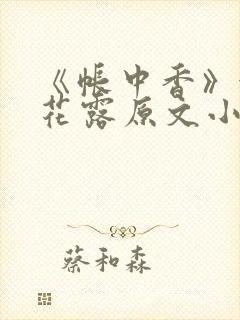 《帐中香》
花露原文小
蔡和森